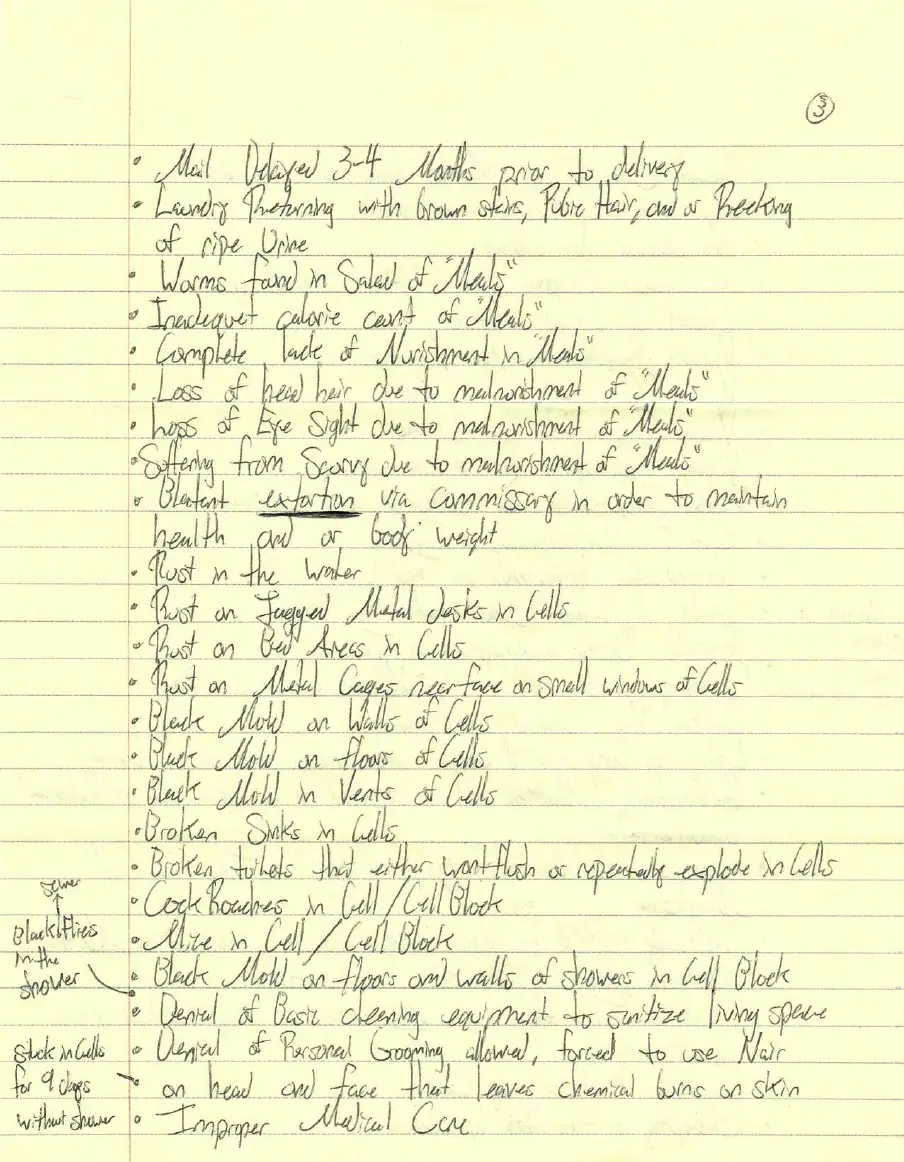 3
• Mail Delayed 3-4 Months prior to delivery
• Laundry Returning with brown stains, Pubic Hair, and or Reeking
of ripe Urine
• Worms found in Salad of "Meals"
• Inadequet calorie count of "Meals"
• Complete lack of Nurishment in "Meals"
• Loss of head hair due to malnurishment of "Meals"
• Loss of Eye Sight due to malnurishment of "Meals"
• Soffering from Scurvy due to malnurishment of "Meals"
• Blatant extortion via Commissary in order to maintain
health and or body weight
• Rust in the Water
• Rust on Jagged Metal desks in Cells
• Rust on Bed Areas in Cells
• Rust on Metal Cages near face on small windows of Cells
• Black Mold on Walls of Cells
• Black Mold on floors of Cells
• Black Mold in Vents of Cells
• Broken Sinks in Cells
• Broken toilets that either wont flush or repeatedly explode in Cells
• CockRoaches in Cell / Cell Block
• Mice in Cell / Cell Block
• Black Mold on floors and walls of showers in Cell Block
sewer
Black flies
in the
shower
• Denial of Basic cleaning equipment to sanitize living space
• Denial of Personal Grooming allowed, forced to use Nair
• on head and face that leaves chemical burns on skin
stuck in Cells
for 9 days
without shower
• Improper Medical Care